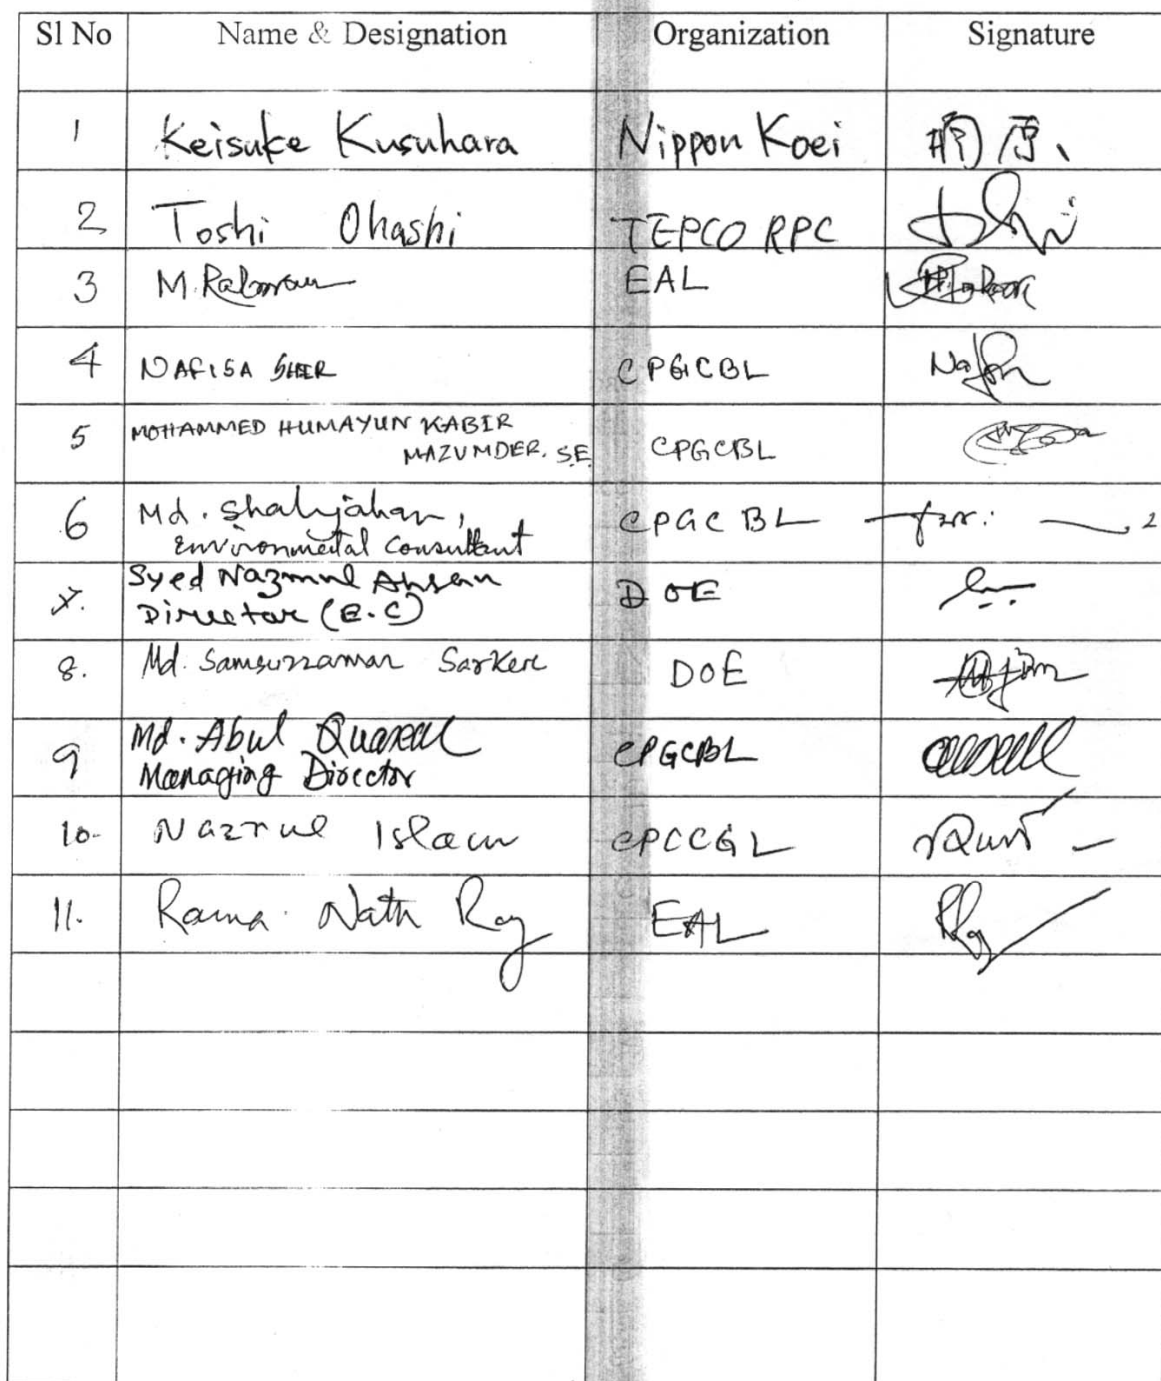 Sl No Name & Designation Organization Signature
1 Keisuke Kusuhara Nippon Koei
2 Toshi Ohashi TEPCO RPC
3 M. Rahman EAL
4 NAFISA SHER CPGCBL
5 MOHAMMED HUMAYUN KABIR
MAZUMDER. SE CPGCBL
6 Md. Shahjahan, CPGCBL
Environmental Consultant
7. Syed Nazmul Ahsan DOE
Director (E.C)
8. Md. Samsuzzaman Sarker DOE
9 Md. Abul Quasem CPGCBL
Managing Director
10. Nazrul Islam CPCCGL
11. Rama Nath Roy EAL